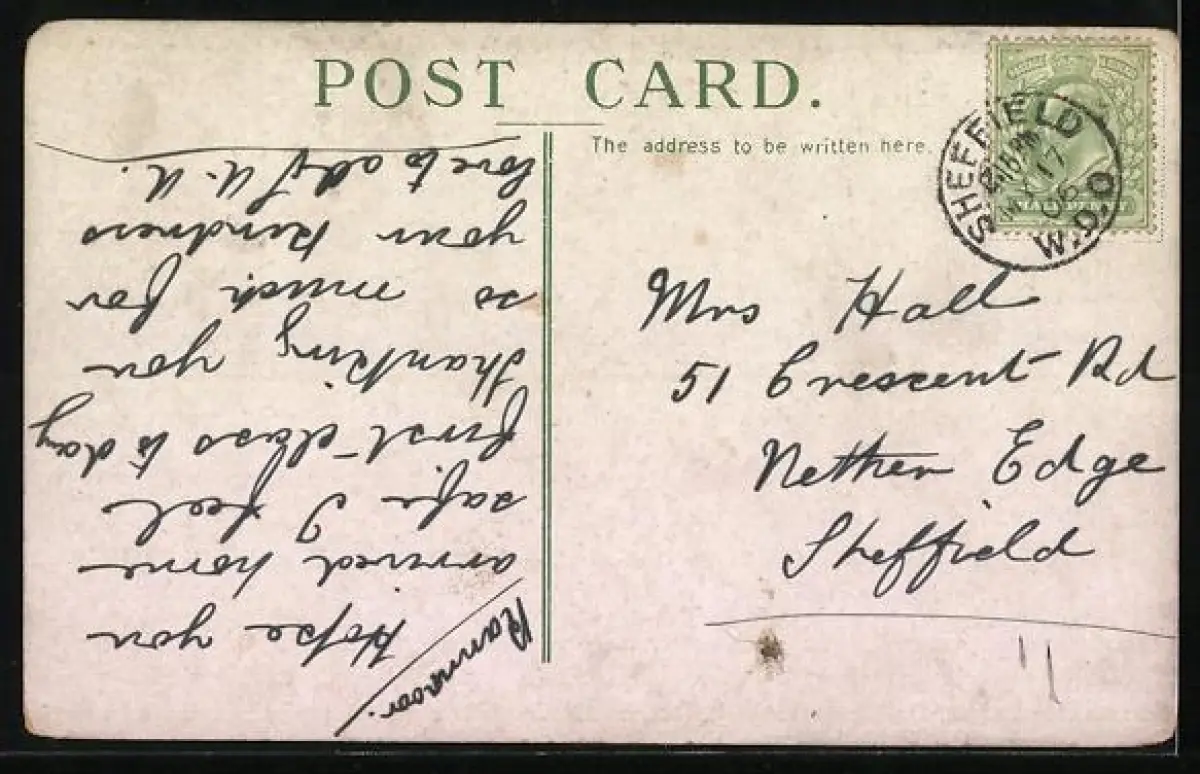 POST CARD.
The address to be written here.
SHEFFIELD
MY 17
06
W.D.O
HALFPENNY
Mrs Hall
51 Crescent Rd
Nether Edge
Sheffield
Ranmoor.
Hope you
arrived home
safe I feel
first class to day
thanking you
so much for
your kindness
love to all